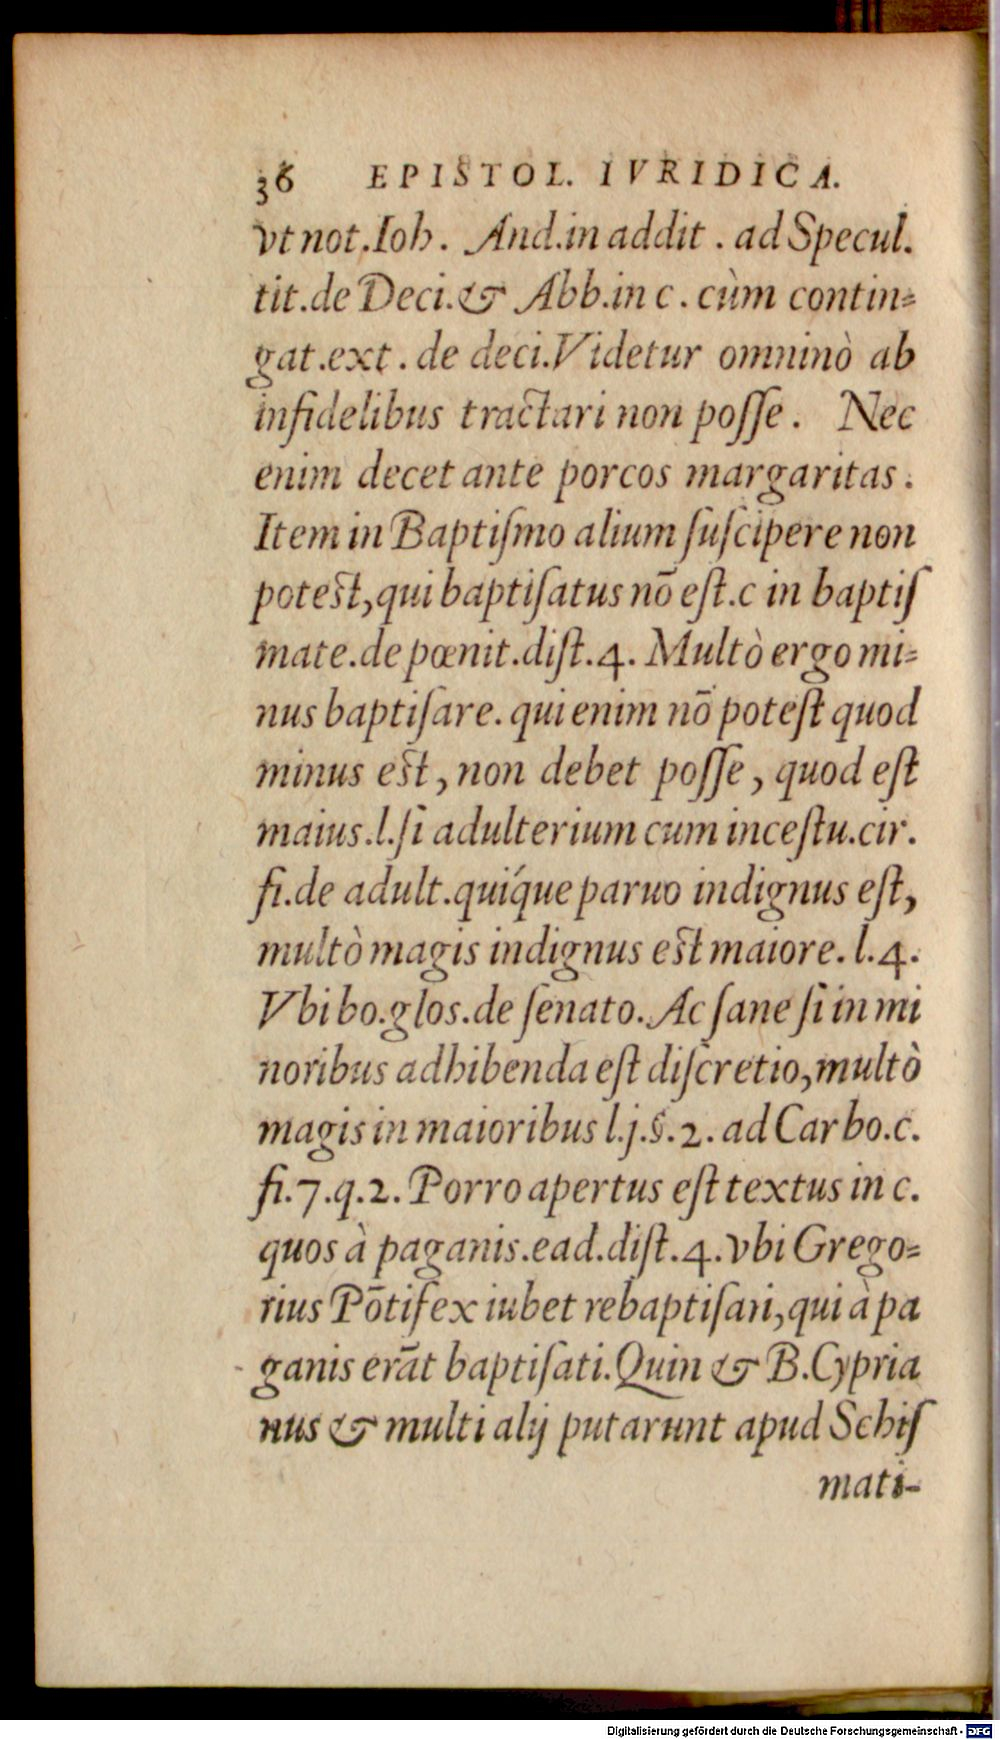 36 EPISTOL. IVRIDICA.
vt not.Ioh. And.in addit. ad Specul.
tit.de Deci.& Abb.in c. cùm contin=
gat.ext. de deci.Videtur omninò ab
infidelibus tractari non posſe. Nec
enim decet ante porcos margaritas.
Item in Baptiſmo alium ſuſcipere non
potest,qui baptiſatus nō eſt.c in baptiſ
mate.de pœnit.diſt.4. Multò ergo mi=
nus baptiſare. qui enim nō poteſt quod
minus est, non debet poſſe, quod eſt
maius.l.ſi adulterium cum inceſtu.cir.
fi.de adult.quíque paruo indignus eſt,
multò magis indignus est maiore. l.4.
Vbi bo.glos.de ſenato. Ac ſane ſi in mi
noribus adhibenda eſt diſcretio,multò
magis in maioribus l.j.§.2. ad Carbo.c.
fi.7.q.2. Porro apertus eſt textus in c.
quos à paganis.ead.diſt.4.vbi Grego=
rius Pōtifex iubet rebaptiſari,qui à pa
ganis erāt baptiſati.Quin & B.Cypria
nus & multi alij putarunt apud Schiſ
mati-
Digitalisierung gefördert durch die Deutsche Forschungsgemeinschaft - DFG